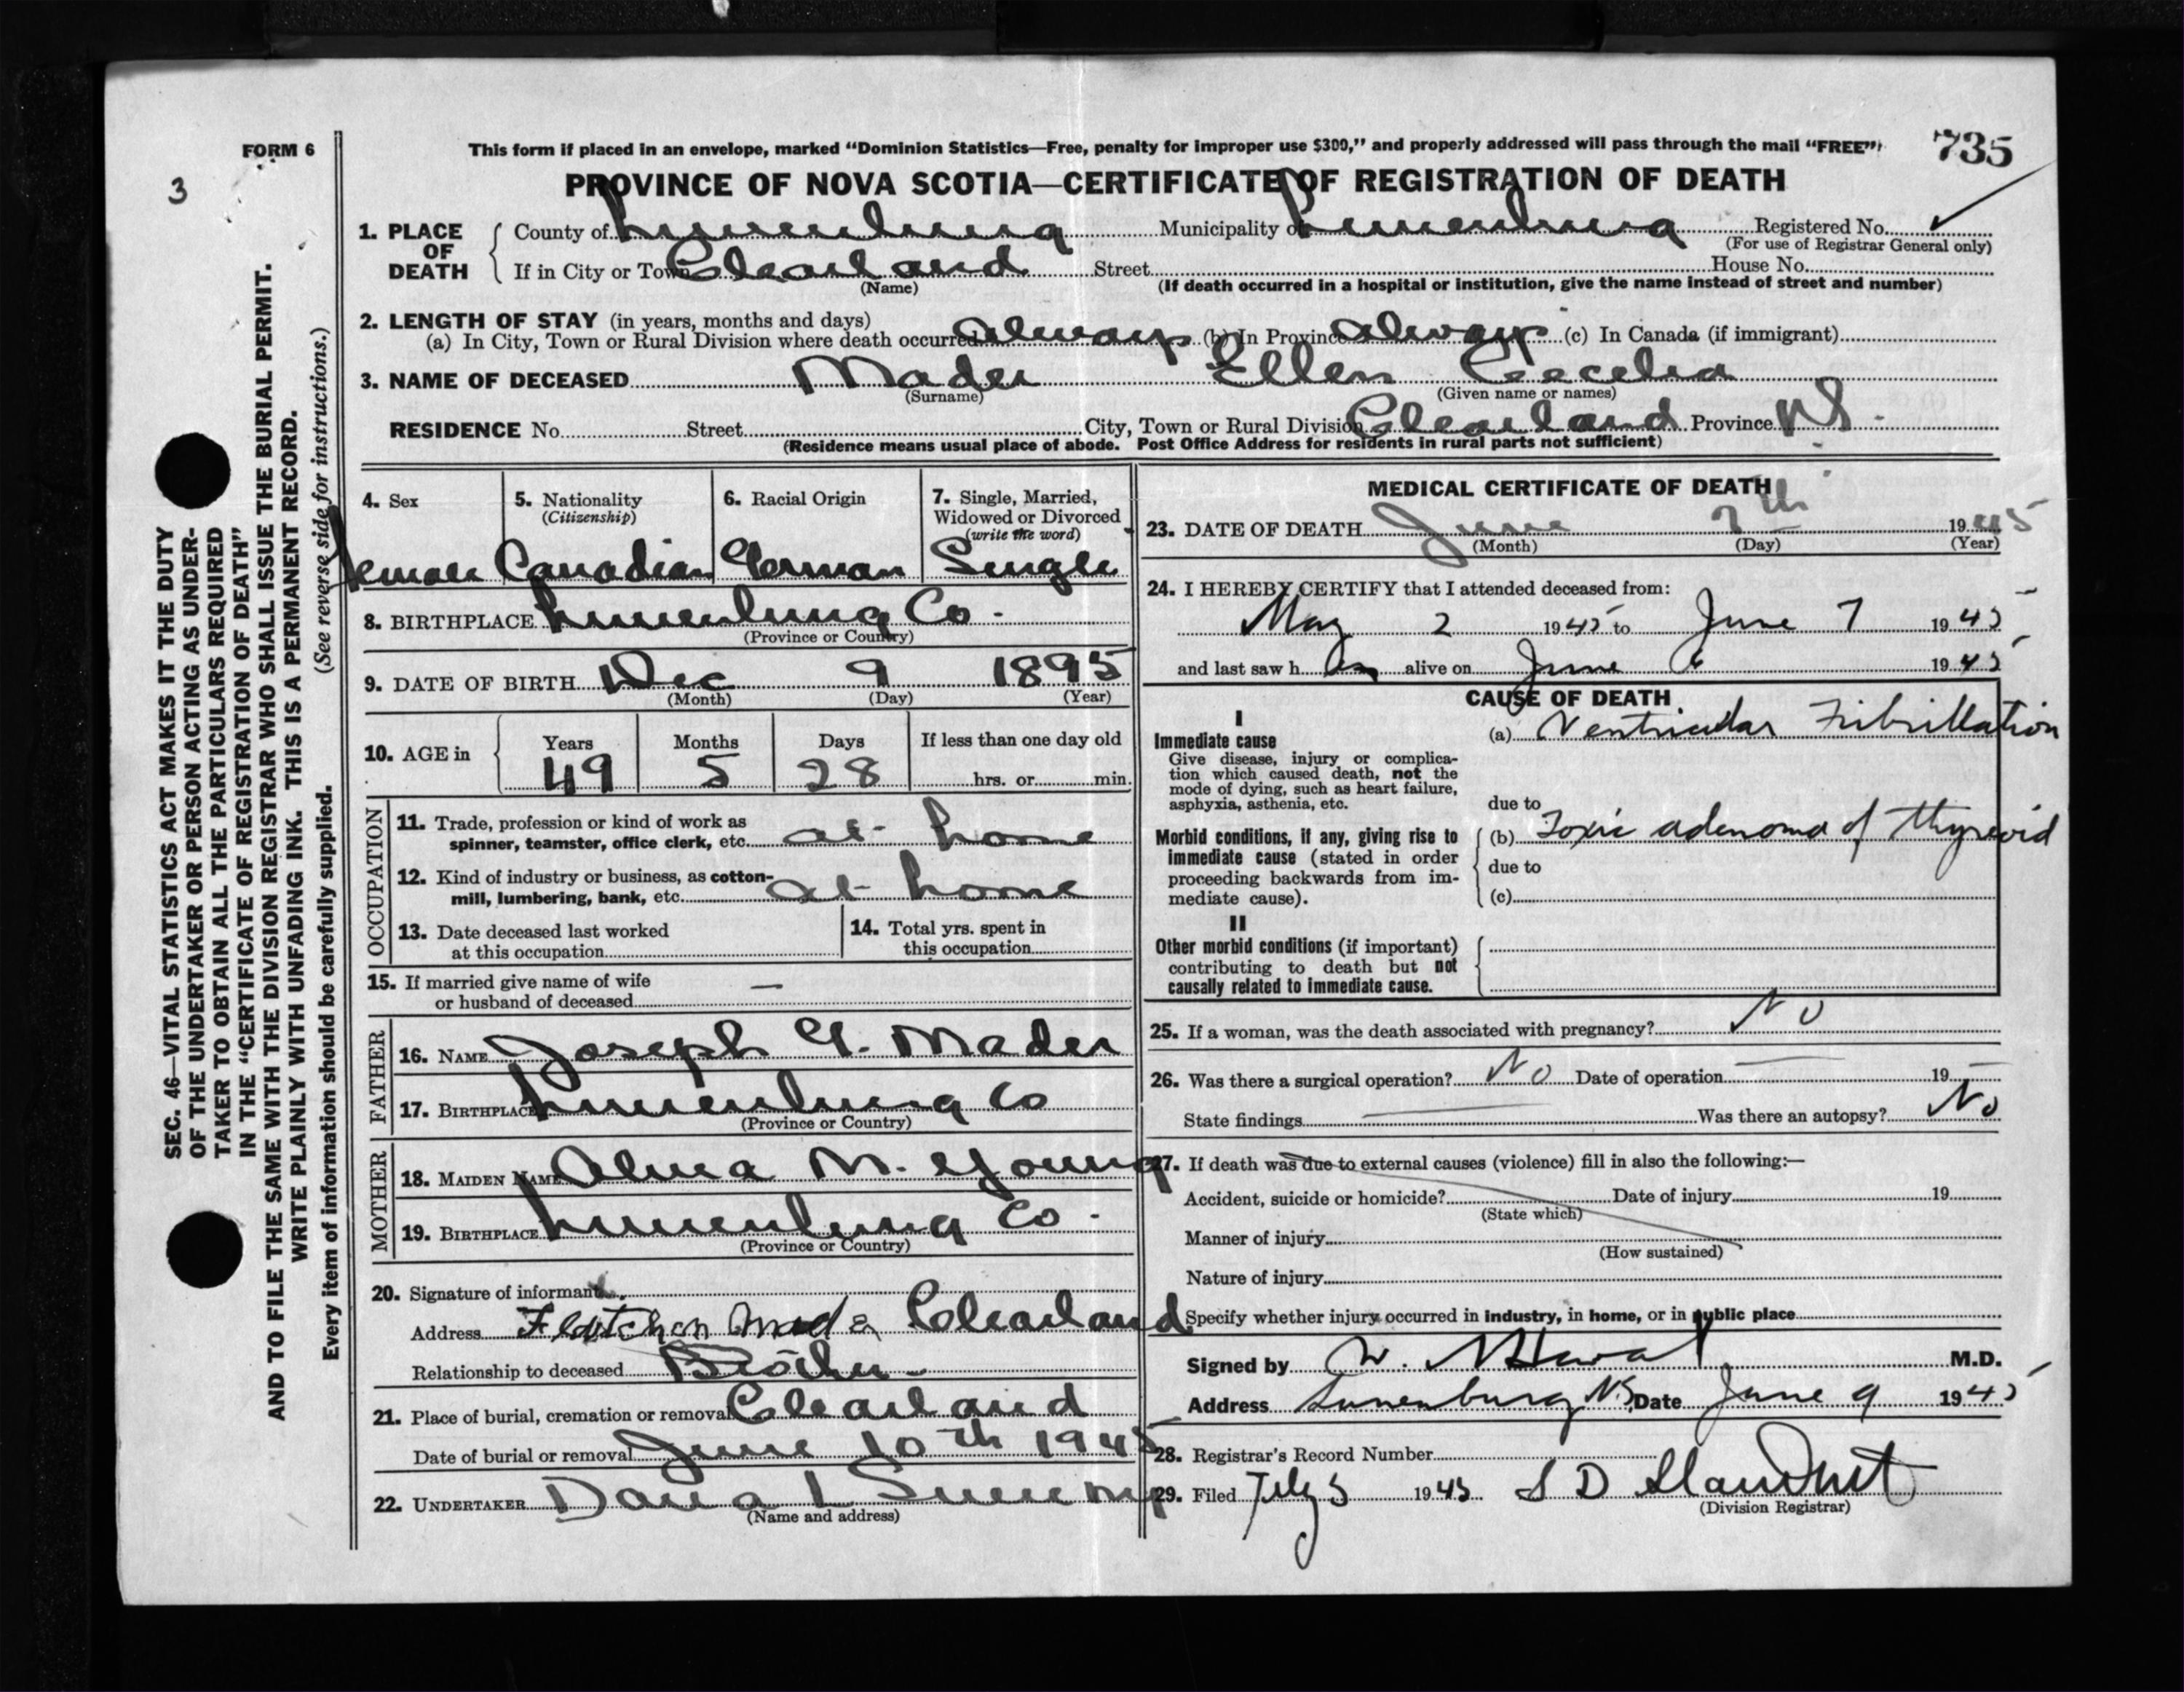 FORM 6
3
735
This form if placed in an envelope, marked “Dominion Statistics—Free, penalty for improper use $300,” and properly addressed will pass through the mail “FREE”
PROVINCE OF NOVA SCOTIA—CERTIFICATE OF REGISTRATION OF DEATH
1. PLACE OF DEATH
County of Lunenburg Municipality of Lunenburg Registered No.
(For use of Registrar General only)
If in City or Town Clearland Street House No.
(Name) (If death occurred in a hospital or institution, give the name instead of street and number)
2. LENGTH OF STAY (in years, months and days)
(a) In City, Town or Rural Division where death occurred always (b) In Province always (c) In Canada (if immigrant)
3. NAME OF DECEASED Mader Ellen Cecelia
(Surname) (Given name or names)
RESIDENCE No. Street City, Town or Rural Division Clearland Province NS.
(Residence means usual place of abode. Post Office Address for residents in rural parts not sufficient)
4. Sex
female
5. Nationality
(Citizenship)
Canadian
6. Racial Origin
German
7. Single, Married,
Widowed or Divorced
(write the word)
Single
8. BIRTHPLACE Lunenburg Co.
(Province or Country)
9. DATE OF BIRTH Dec 9 1895
(Month) (Day) (Year)
10. AGE in
Years Months Days If less than one day old
49 5 28 hrs. or min.
OCCUPATION
11. Trade, profession or kind of work as
spinner, teamster, office clerk, etc. at home
12. Kind of industry or business, as cotton-
mill, lumbering, bank, etc. at home
13. Date deceased last worked
at this occupation
14. Total yrs. spent in
this occupation
15. If married give name of wife
or husband of deceased —
FATHER
16. NAME Joseph G. Mader
17. BIRTHPLACE Lunenburg Co
(Province or Country)
MOTHER
18. MAIDEN NAME Alma M. Young
19. BIRTHPLACE Lunenburg Co.
(Province or Country)
20. Signature of informant
Address Fletcher Mader Clearland
Relationship to deceased Brother
21. Place of burial, cremation or removal Clearland
Date of burial or removal June 10th 1945
22. UNDERTAKER
(Name and address)
MEDICAL CERTIFICATE OF DEATH
23. DATE OF DEATH June 7th 1945
(Month) (Day) (Year)
24. I HEREBY CERTIFY that I attended deceased from:
May 2 1945 to June 7 1945
and last saw her alive on June 6 1945
CAUSE OF DEATH
I
Immediate cause
Give disease, injury or complica-
tion which caused death, not the
mode of dying, such as heart failure,
asphyxia, asthenia, etc.
(a) Ventricular Fibrillation
due to
Morbid conditions, if any, giving rise to
immediate cause (stated in order
proceeding backwards from im-
mediate cause).
(b) Toxic adenoma of thyreoid
due to
(c)
II
Other morbid conditions (if important)
contributing to death but not
causally related to immediate cause.
25. If a woman, was the death associated with pregnancy? No
26. Was there a surgical operation? No Date of operation — 19—
State findings — Was there an autopsy? No
27. If death was due to external causes (violence) fill in also the following:—
Accident, suicide or homicide? Date of injury 19
(State which)
Manner of injury
(How sustained)
Nature of injury
Specify whether injury occurred in industry, in home, or in public place
Signed by M.D.
Address Lunenburg N.S. Date June 9 1945
28. Registrar's Record Number
29. Filed July 5 1945
(Division Registrar)
SEC. 46—VITAL STATISTICS ACT MAKES IT THE DUTY
OF THE UNDERTAKER OR PERSON ACTING AS UNDER-
TAKER TO OBTAIN ALL THE PARTICULARS REQUIRED
IN THE “CERTIFICATE OF REGISTRATION OF DEATH”
AND TO FILE THE SAME WITH THE DIVISION REGISTRAR WHO SHALL ISSUE THE BURIAL PERMIT.
WRITE PLAINLY WITH UNFADING INK. THIS IS A PERMANENT RECORD.
Every item of information should be carefully supplied. (See reverse side for instructions.)